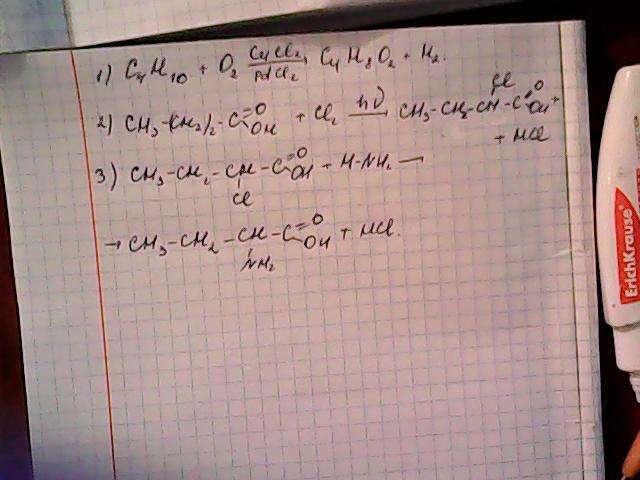 1) C₄H₁₀ + O₂ CuCl₂, PdCl₂ C₄H₈O₂ + H₂.
2) CH₃-(CH₂)₂-C=O OH + Cl₂ hν CH₃-CH₂-CH-C=O Cl OH +
+ HCl
3) CH₃-CH₂-CH-C=O OH + H-NH₂ →
Cl
→ CH₃-CH₂-CH-C=O OH + HCl.
NH₂
ErichKrause